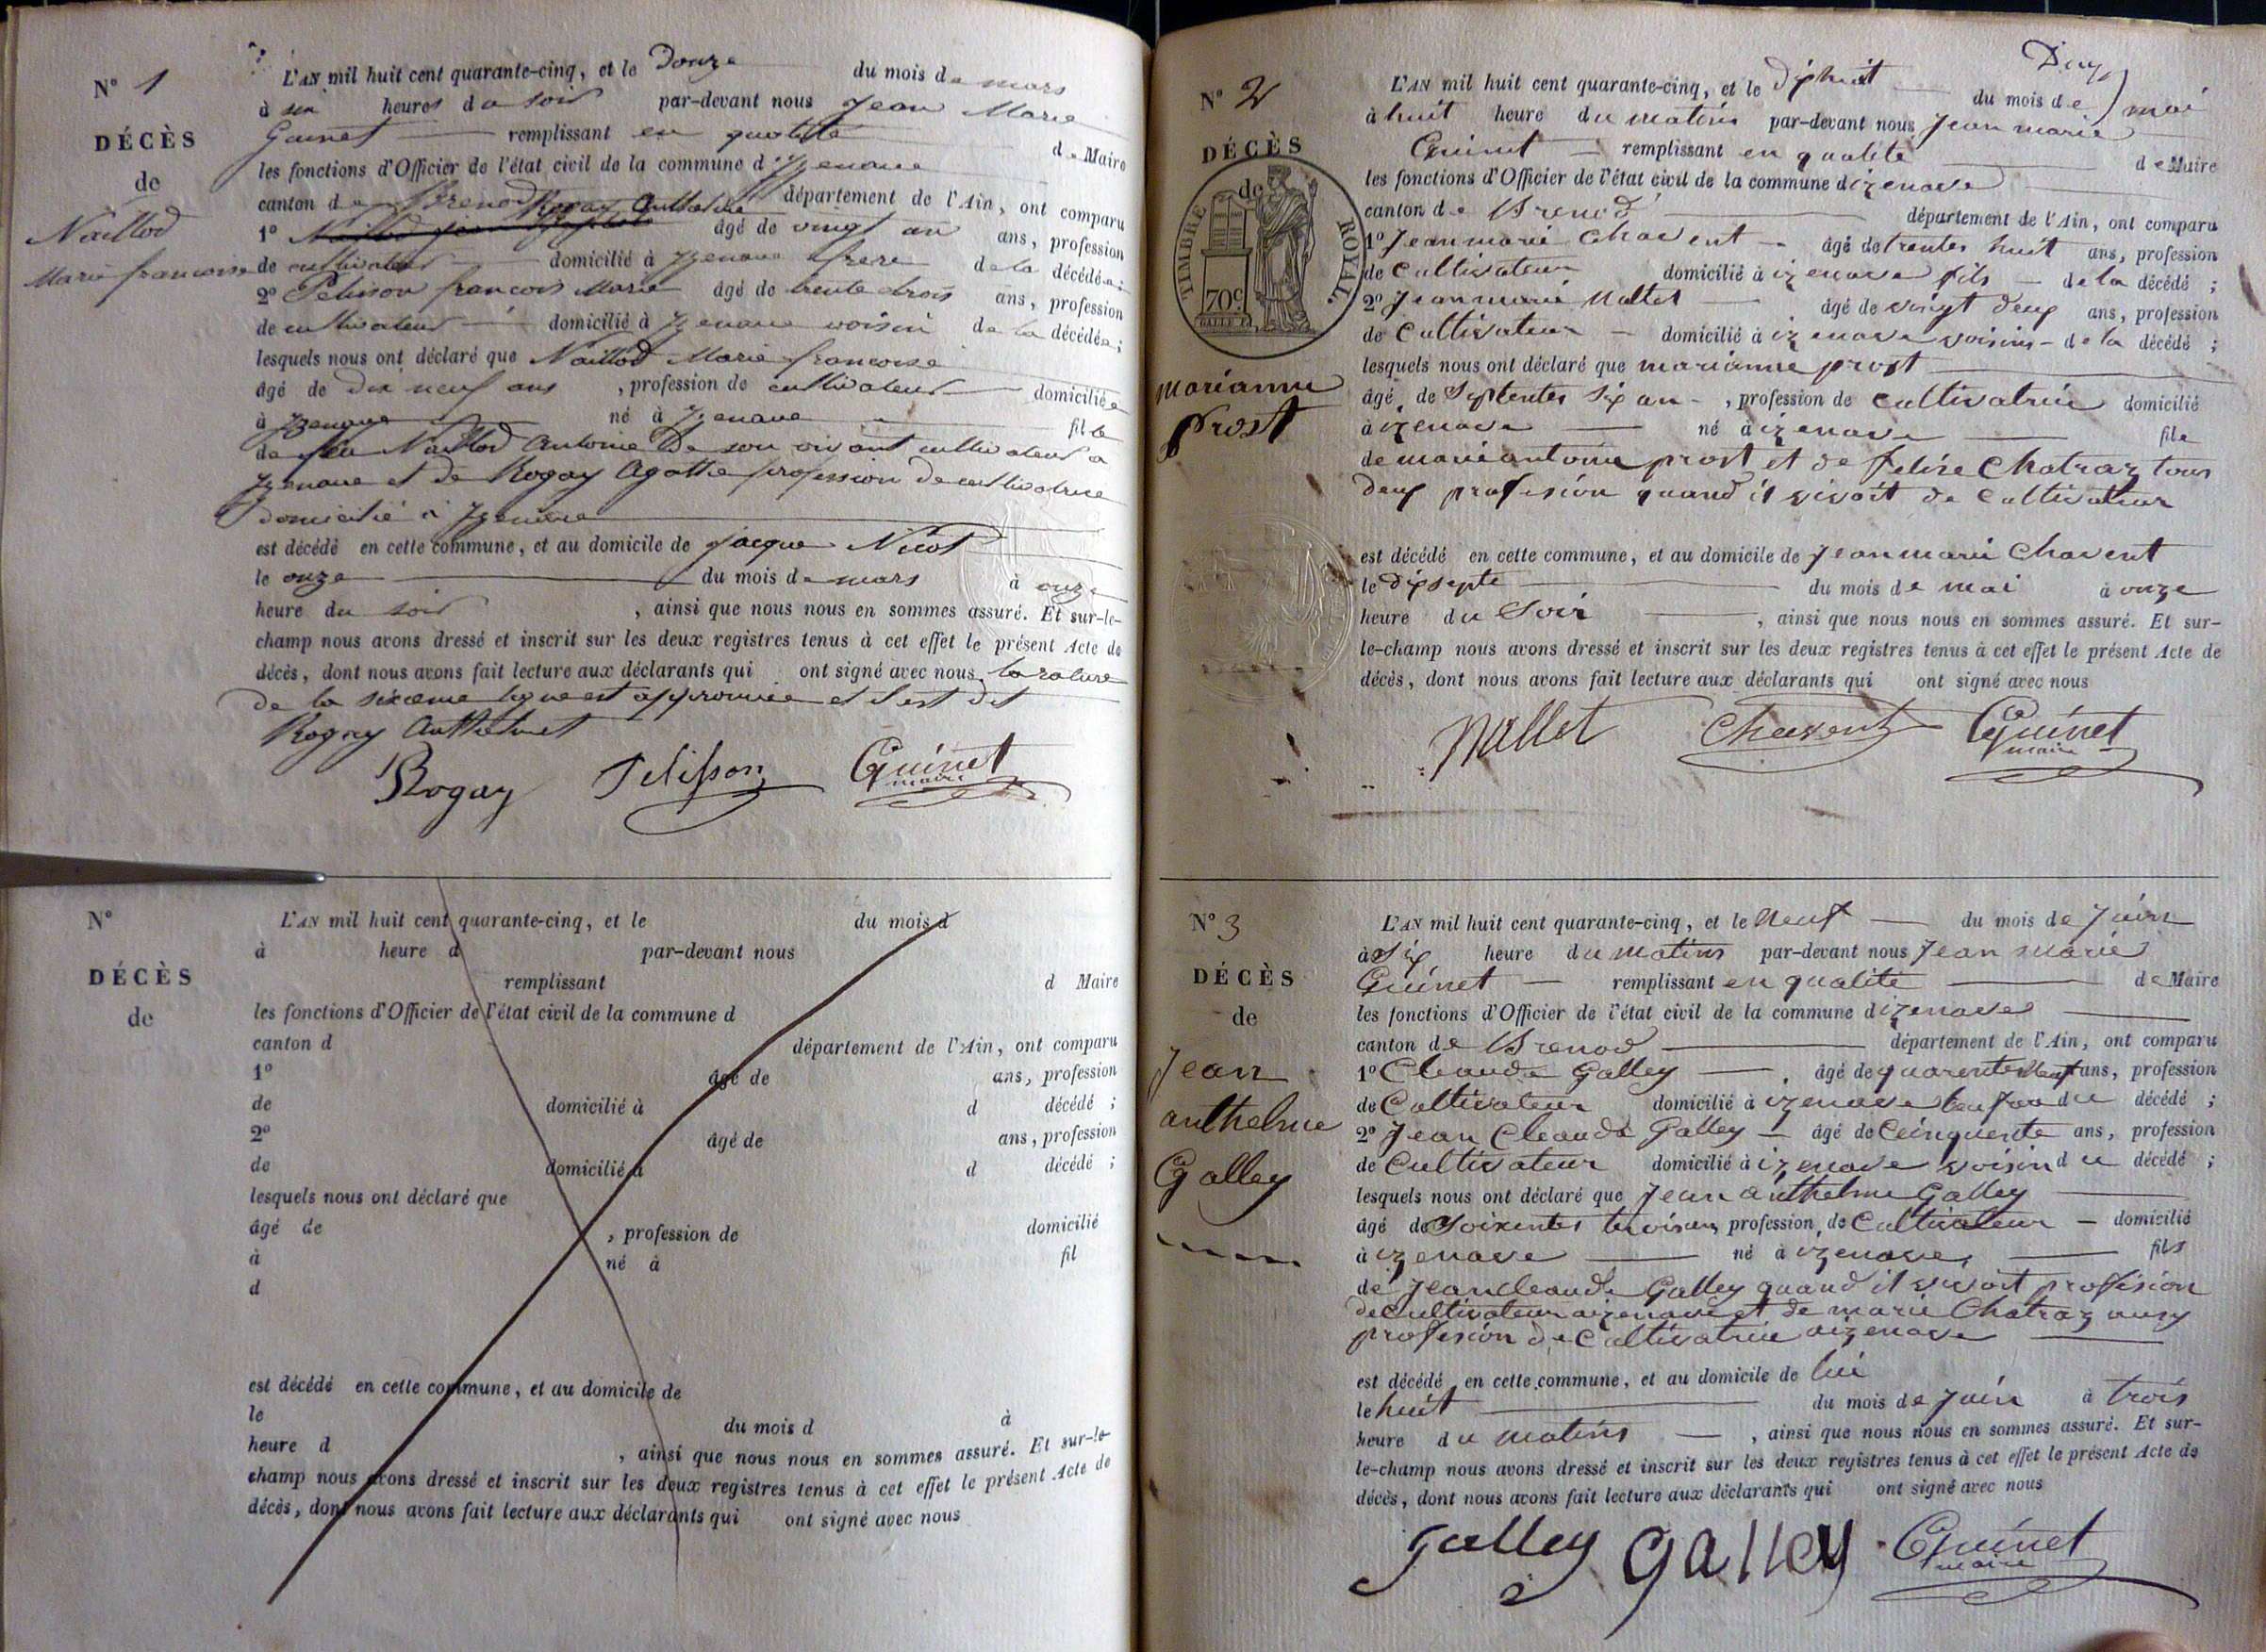 N° 1
DÉCÈS
de
Naillod
Marie francoise
L'AN mil huit cent quarante-cinq, et le Douze du mois de mars
à six heures du soir par-devant nous Jean Marie
Guinet remplissant en qualité de Maire
les fonctions d'Officier de l'état civil de la commune d'Izenave
canton de Brenod département de l'Ain, ont comparu
Rogay Anthelme
1° Naillod âgé de vingt an ans, profession
de cultivateur domicilié à Izenave frere de la décédée;
2° Pelisson francois Marie âgé de trente trois ans, profession
de cultivateur domicilié à Izenave voisin de la décédée;
lesquels nous ont déclaré que Naillod Marie francoise
âgé de dix neuf ans, profession de cultivateur domiciliée
à Izenave né à Izenave fille
de feu Naillod Antoine De son vivant cultivateur a
Izenave et de Rogay Agathe profession de cultivatrice
domicilié à Izenave
est décédé en cette commune, et au domicile de jacque Nicot
le onze du mois de mars à onze
heure du soir, ainsi que nous nous en sommes assuré. Et sur-le-
champ nous avons dressé et inscrit sur les deux registres tenus à cet effet le présent Acte de
décès, dont nous avons fait lecture aux déclarants qui ont signé avec nous la rature
de la sixieme ligne est approuvée et s'est dit
Rogay
Rogay Pelisson Guinet
maire
N°
DÉCÈS
de
L'AN mil huit cent quarante-cinq, et le du mois d
à heure d par-devant nous
remplissant d Maire
les fonctions d'Officier de l'état civil de la commune d
canton d département de l'Ain, ont comparu
1° âgé de ans, profession
de domicilié à d décédé;
2° âgé de ans, profession
de domicilié à d décédé;
lesquels nous ont déclaré que
âgé de, profession de domicilié
à né à fil
d
est décédé en cette commune, et au domicile de
le du mois d à
heure d, ainsi que nous nous en sommes assuré. Et sur-le-
champ nous avons dressé et inscrit sur les deux registres tenus à cet effet le présent Acte de
décès, dont nous avons fait lecture aux déclarants qui ont signé avec nous
N° 2
DÉCÈS
de
TIMBRE ROYAL.
70c.
marianne
Prost
L'AN mil huit cent quarante-cinq, et le diphuit du mois de mai
à huit heure du matins par-devant nous Jean marie
Guinet remplissant en qualité de Maire
les fonctions d'Officier de l'état civil de la commune dizenave
canton de Brenod département de l'Ain, ont comparu
1° Jean marie Chavent âgé de trentes huit ans, profession
de Cultivateur domicilié à izenave fils de la décédé;
2° Jean marie Mallet âgé de vingt deux ans, profession
de Cultivateur domicilié à izenave voisins de la décédé;
lesquels nous ont déclaré que marianne prost
âgé de Septentes Six an, profession de cultivatrice domicilié
à izenave né à izenave file
de marie antoine prost et de felise Chatraz tous
deux profesion quand il vivoit de Cultivateur
est décédé en cette commune, et au domicile de Jean marie Chavent
le dipsepte du mois de mai à onze
heure du Soir, ainsi que nous nous en sommes assuré. Et sur-
le-champ nous avons dressé et inscrit sur les deux registres tenus à cet effet le présent Acte de
décès, dont nous avons fait lecture aux déclarants qui ont signé avec nous
Mallet Chavent Guinet
maire
N° 3
DÉCÈS
de
Jean
anthelme
Galley
L'AN mil huit cent quarante-cinq, et le Neuf du mois de Juin
à Six heure du matins par-devant nous Jean marie
Guinet remplissant en qualité de Maire
les fonctions d'Officier de l'état civil de la commune dizenave
canton de Brenod département de l'Ain, ont comparu
1° Claude Galley âgé de quarentes Neuf ans, profession
de Cultivateur domicilié à izenave du décédé;
2° Jean Claude Galley âgé de Cinquente ans, profession
de Cultivateur domicilié à izenave voisin du décédé;
lesquels nous ont déclaré que Jean anthelme Galley
âgé de Soixentes troisan, profession de Cultivateur domicilié
à izenave né à izenave fils
de Jean Claude Galley quand il vivoit profision
de cultivateur aizenave et de marie Chatraz ausy
profesion de Cultivatrice aizenave
est décédé en cette commune, et au domicile de lui
le huit du mois de Juin à trois
heure du matins, ainsi que nous nous en sommes assuré. Et sur-
le-champ nous avons dressé et inscrit sur les deux registres tenus à cet effet le présent Acte de
décès, dont nous avons fait lecture aux déclarants qui ont signé avec nous
Galley Galley Guinet
maire